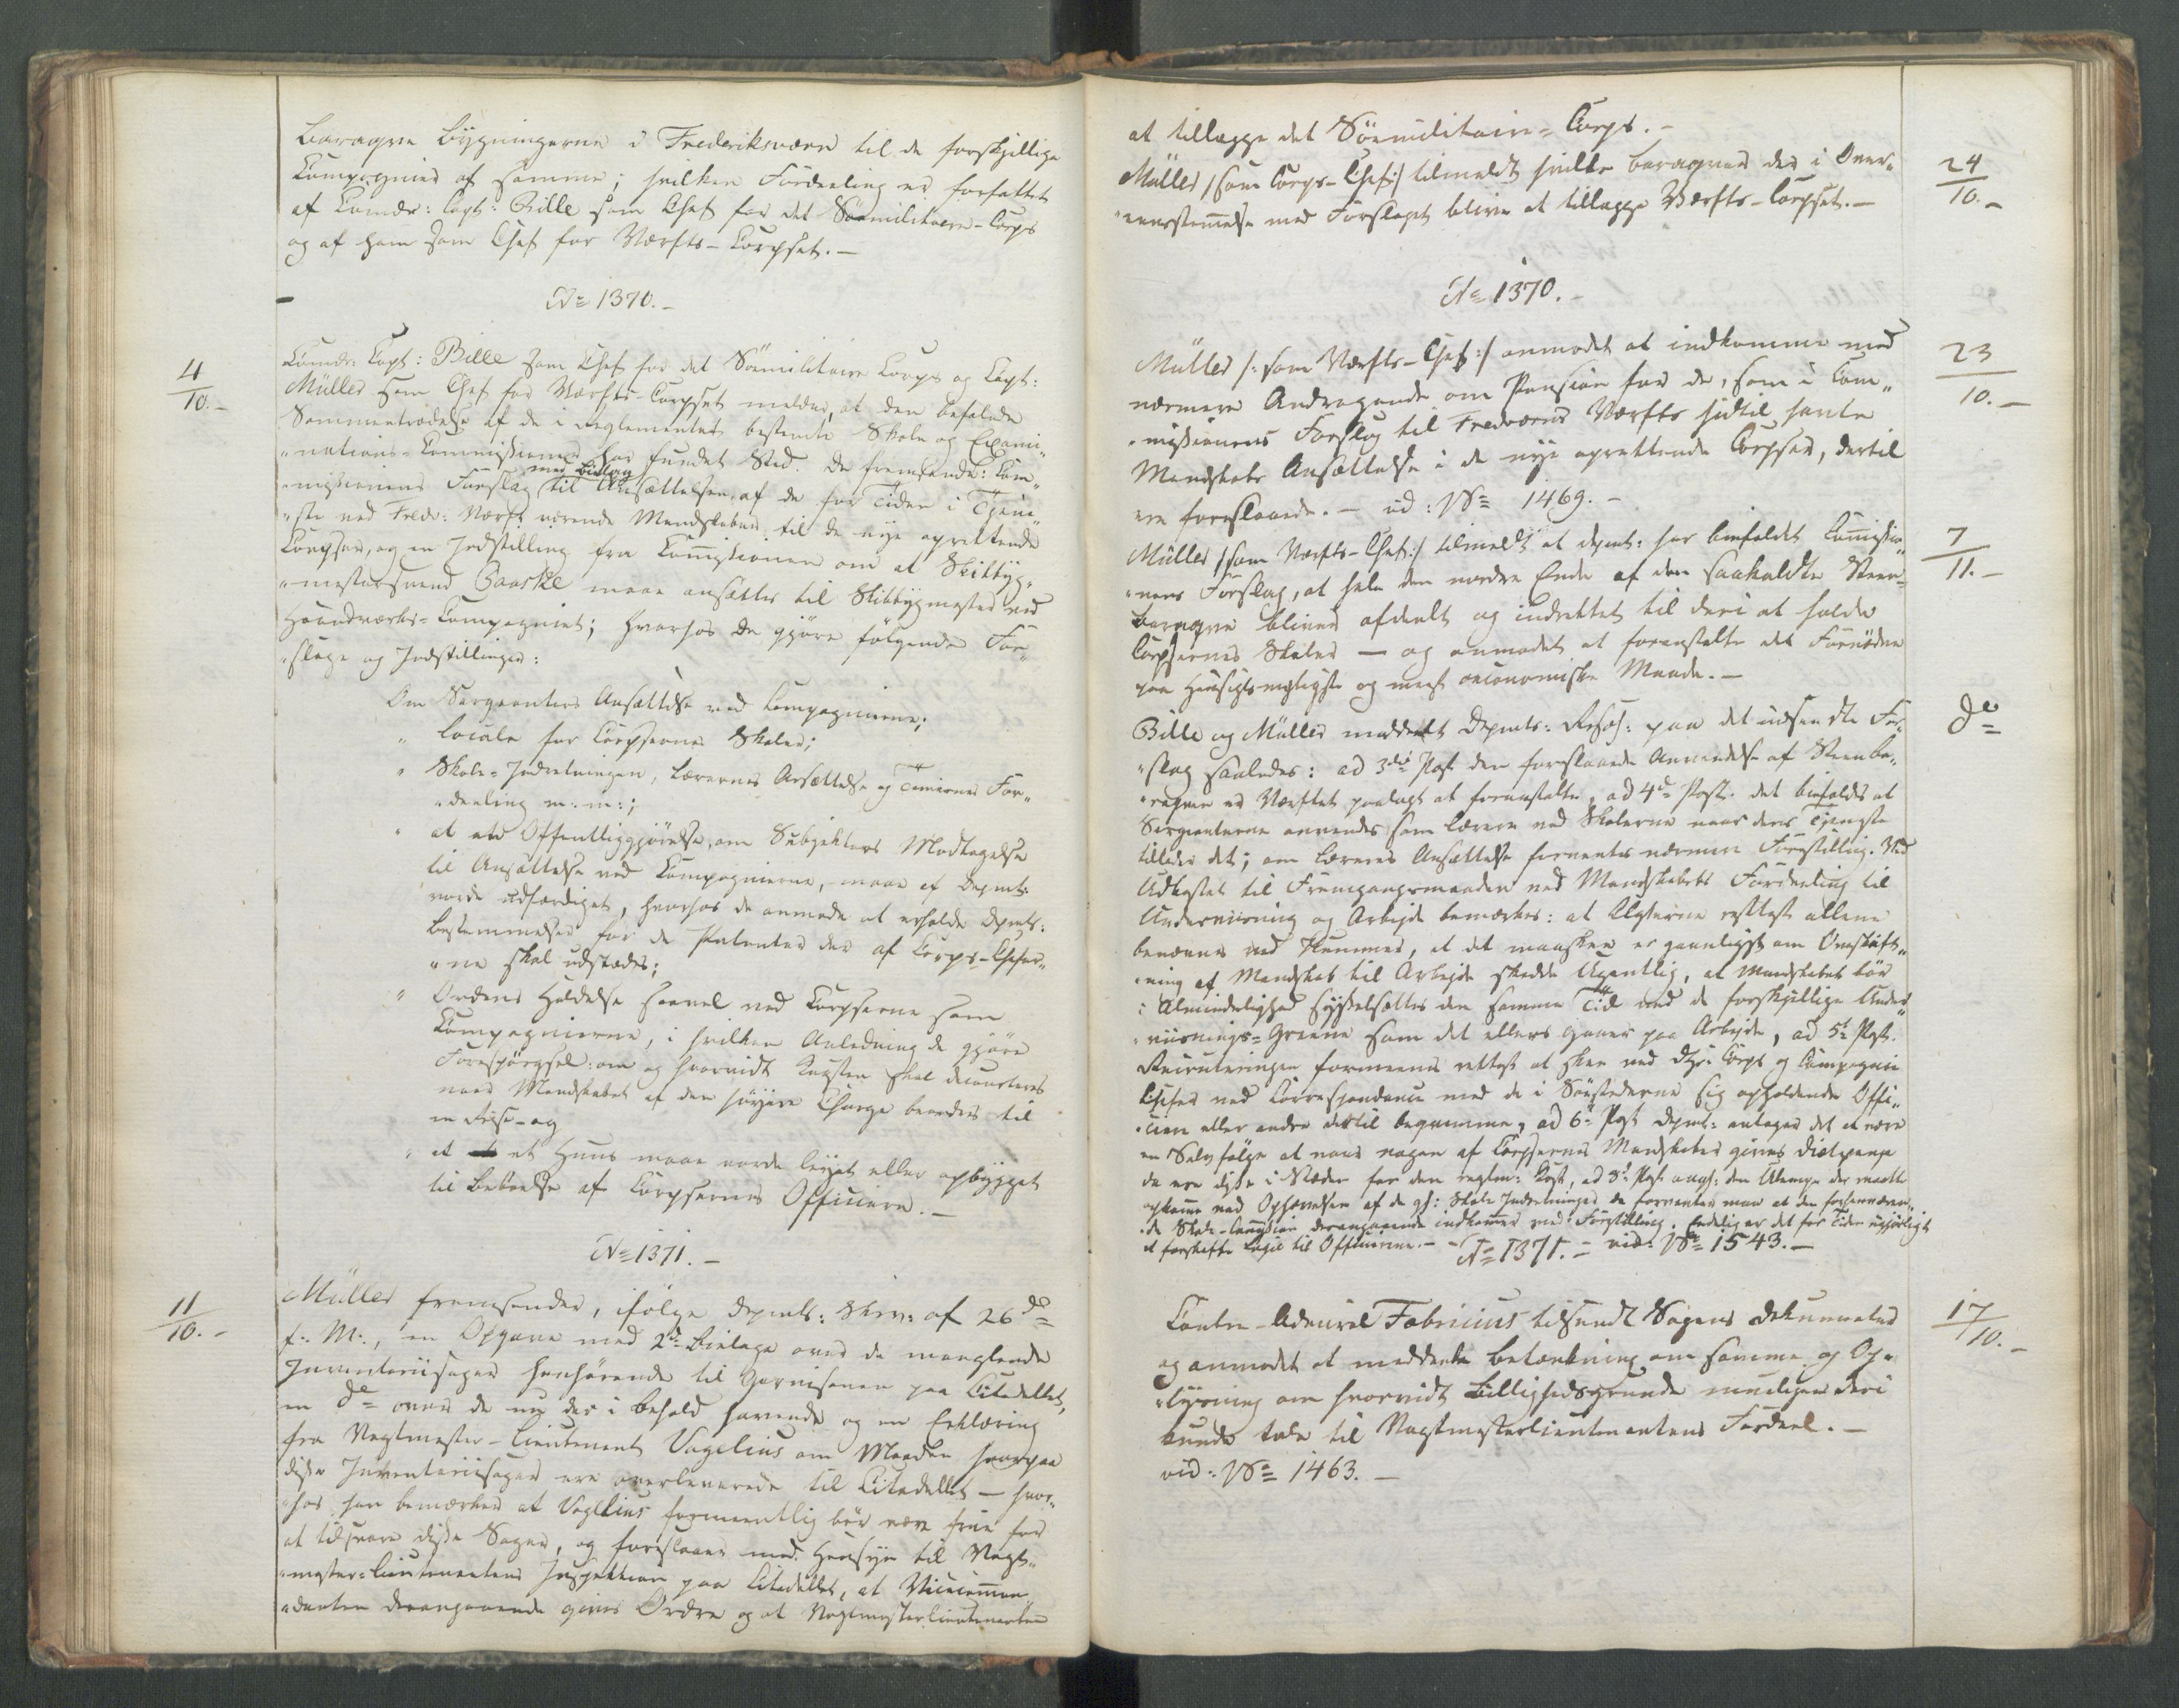 Baraque Bygningerne i Frederiksværn til de forskjellige
Kompagnier af samme; hvilken Fordeeling er forfattet
af Komdr: Capt: Bille som Chef for det Söemilitaire-Corps
og af ham som Chef for Værfts-Corpset.-
No 1370.-
4/10.-
Komdr: Capt: Bille som Chef for det Söemilitaire Corps og Capt:
Müller som Chef for Værfts-Corpset melder, at den befalede
Sammentrædelse af de i Reglementet bestemte Skole og Exami„
„nations-Commissioner har fundet Sted. De fremsende: Com„
„missionens Forslag med Bielag til Ansættelsen af de for Tiden i Tjene„
„ste ved Fredr: Værft værende Mandskaber til de nye oprettende
Corpser, og en Indstilling fra Commissionen om at Skibbyg„
„mestersvend Gaarske maae ansættes til Skibbygmester ved
Haandværks-Compagniet; hvorhos de gjöre fölgende For„
„slage og Indstillinger:
Om Sergeanters Ansættelse ved Compagnierne;
„ Locale for Corpsernes Skoler;
„ Skole-Indretningen, Lærernes Ansættelse og Timernes For„
„deeling m: m:;
„ at en Offentliggjörelse, om Subjekters Modtagelse
til Ansættelse ved Compagnierne, maae af Depmt:
vorde udfærdiget, hvorhos de anmode at erholde Depmts:
Bestemmelse for de Patenter der af Corps-Chefer„
„ne skal udstædes;
„ Ordens Holdelse saavel ved Corpserne som
Compagnierne, i hvilken Anledning de gjöre
Forespörgsel: om og hvorvidt Kosten skal decorteres
naar Mandskabet af den höyere Charge beordres til
en Reise-og
„ at et Huus maae vorde leyet eller opbygget
til Beboelse af Corpsernes Officierer.-
No 1371.-
11/10.-
Müller fremsender, ifölge Depmts: Skriv: af 26de
f: M:, en Opgave med 2de Bielage over de manglende
Inventariisager henhörende til Garnisonen paa Citadellet,
en do over de nu der i Behold havende og en Erklæring
fra Vagtmester-Lieutenant Vagelius om Maaden hvorpaa
disse Inventariisager ere overleverede til Citadellet - hvor„
„hos han bemærker at Vagelius formeentlig bör være frie for
at tilsvare disse Sager, og foreslaaer med Hensyn til Vagt„
„mester-Lieutenantens Inspektion paa Citadellet, at Vicecomman„
„danten derangaaende gives Ordre og at Vagtmesterlieutenanten
at tillægge det Söemilitaire-Corps.-
Müller /:som Corps-Chef:/ tilmeldt hvilke Baraquer der i Over„
„eensstemmelse med Forslaget blive at tillægge Værfts-Corpset.-
24/10.-
No 1370.-
Müller /: som Værfts-Chef:/ anmodet at indkomme med
nærmere Andragende om Pension for de, som i Com„
„missionens Forslag til Fredværns Værfts hidtil havte
Mandskabs Ansættelse i de nye oprettende Corpser, dertil
ere foreslaaede.- vid: No 1469.-
23/10.-
Müller /:som Værfts-Chef:/ tilmeldt at Depmt: har bifaldet Commissio„
„nens Forslag, at hele den nordre Ende af den saakaldte Steen-
Baraque bliver afdeelt og indrettet til deri at holde
Corpsernes Skoler - og anmodet at foranstalte det Fornödne
paa hensigtsmæssigste og meest oeconomiske Maade.-
7/11.-
Bille og Müller meddeelt Depmts: Resol: paa det indsendte For„
„slag saaledes: ad 3die Post den foreslaaede Anvendelse af Steenba„
„raquen er Værftet paalagt at foranstalte, ad 4de Post. det bifaldes at
Sergeanterne anvendes som Lærere ved Skolerne naar deres Tjeneste
tillader det; om Læreres Ansættelse forventes nærmere Forestilling. Ved
Udkastet til Fremgangsmaaden ved Mandskabets Fordeeling til
Underviisning og Arbejde bemærkes: at Classerne rettest allene
benævnes ved Nummer, at det maaskee er gavnligst om Omskift„
„ning af Mandskab til Arbejde skedde Ugentlig, at Mandskabet bör
i Almindelighed sysselsættes den samme Tid med de forskjellige Under„
„viisnings-Grene som det ellers gaaer paa Arbejde, ad 5te Post.
Recruteringen formeenes rettest at skee ved Corps og Compagnie
Chefer ved Correspondance med de i Söestederne sig opholdende Offi„
„cierer eller andre dertil beqvemme, ad 6te Post Depmt: antager det at være
en Selvfölge at naar nogen af Corpsernes Mandskaber gives Diætpenge
da ere disse i Stedet for den reglem: Kost, ad 8de Post angl: den Ulempe der maatte
opkomme ved Ophævelsen af de gl: Skole Indretninger da forventer man at den forhenværen„
„de Skole-Commission derangaaende indkommer med Forestilling. Endelig er det for Tiden ugjörligt
at forskaffe Logie til Officiererne.- vid: No 1543.-
do
No 1371.-
Contre-Admiral Fabricius tilsendt Sagens Dokumenter
og anmodet at meddeele Betænkning om samme og Op„
„lysning om hvorvidt Billighedsgrunde muligen deri
kunde tale til Vagtmesterlieutenantens Fordeel.-
vid: No 1463.-
17/10.-